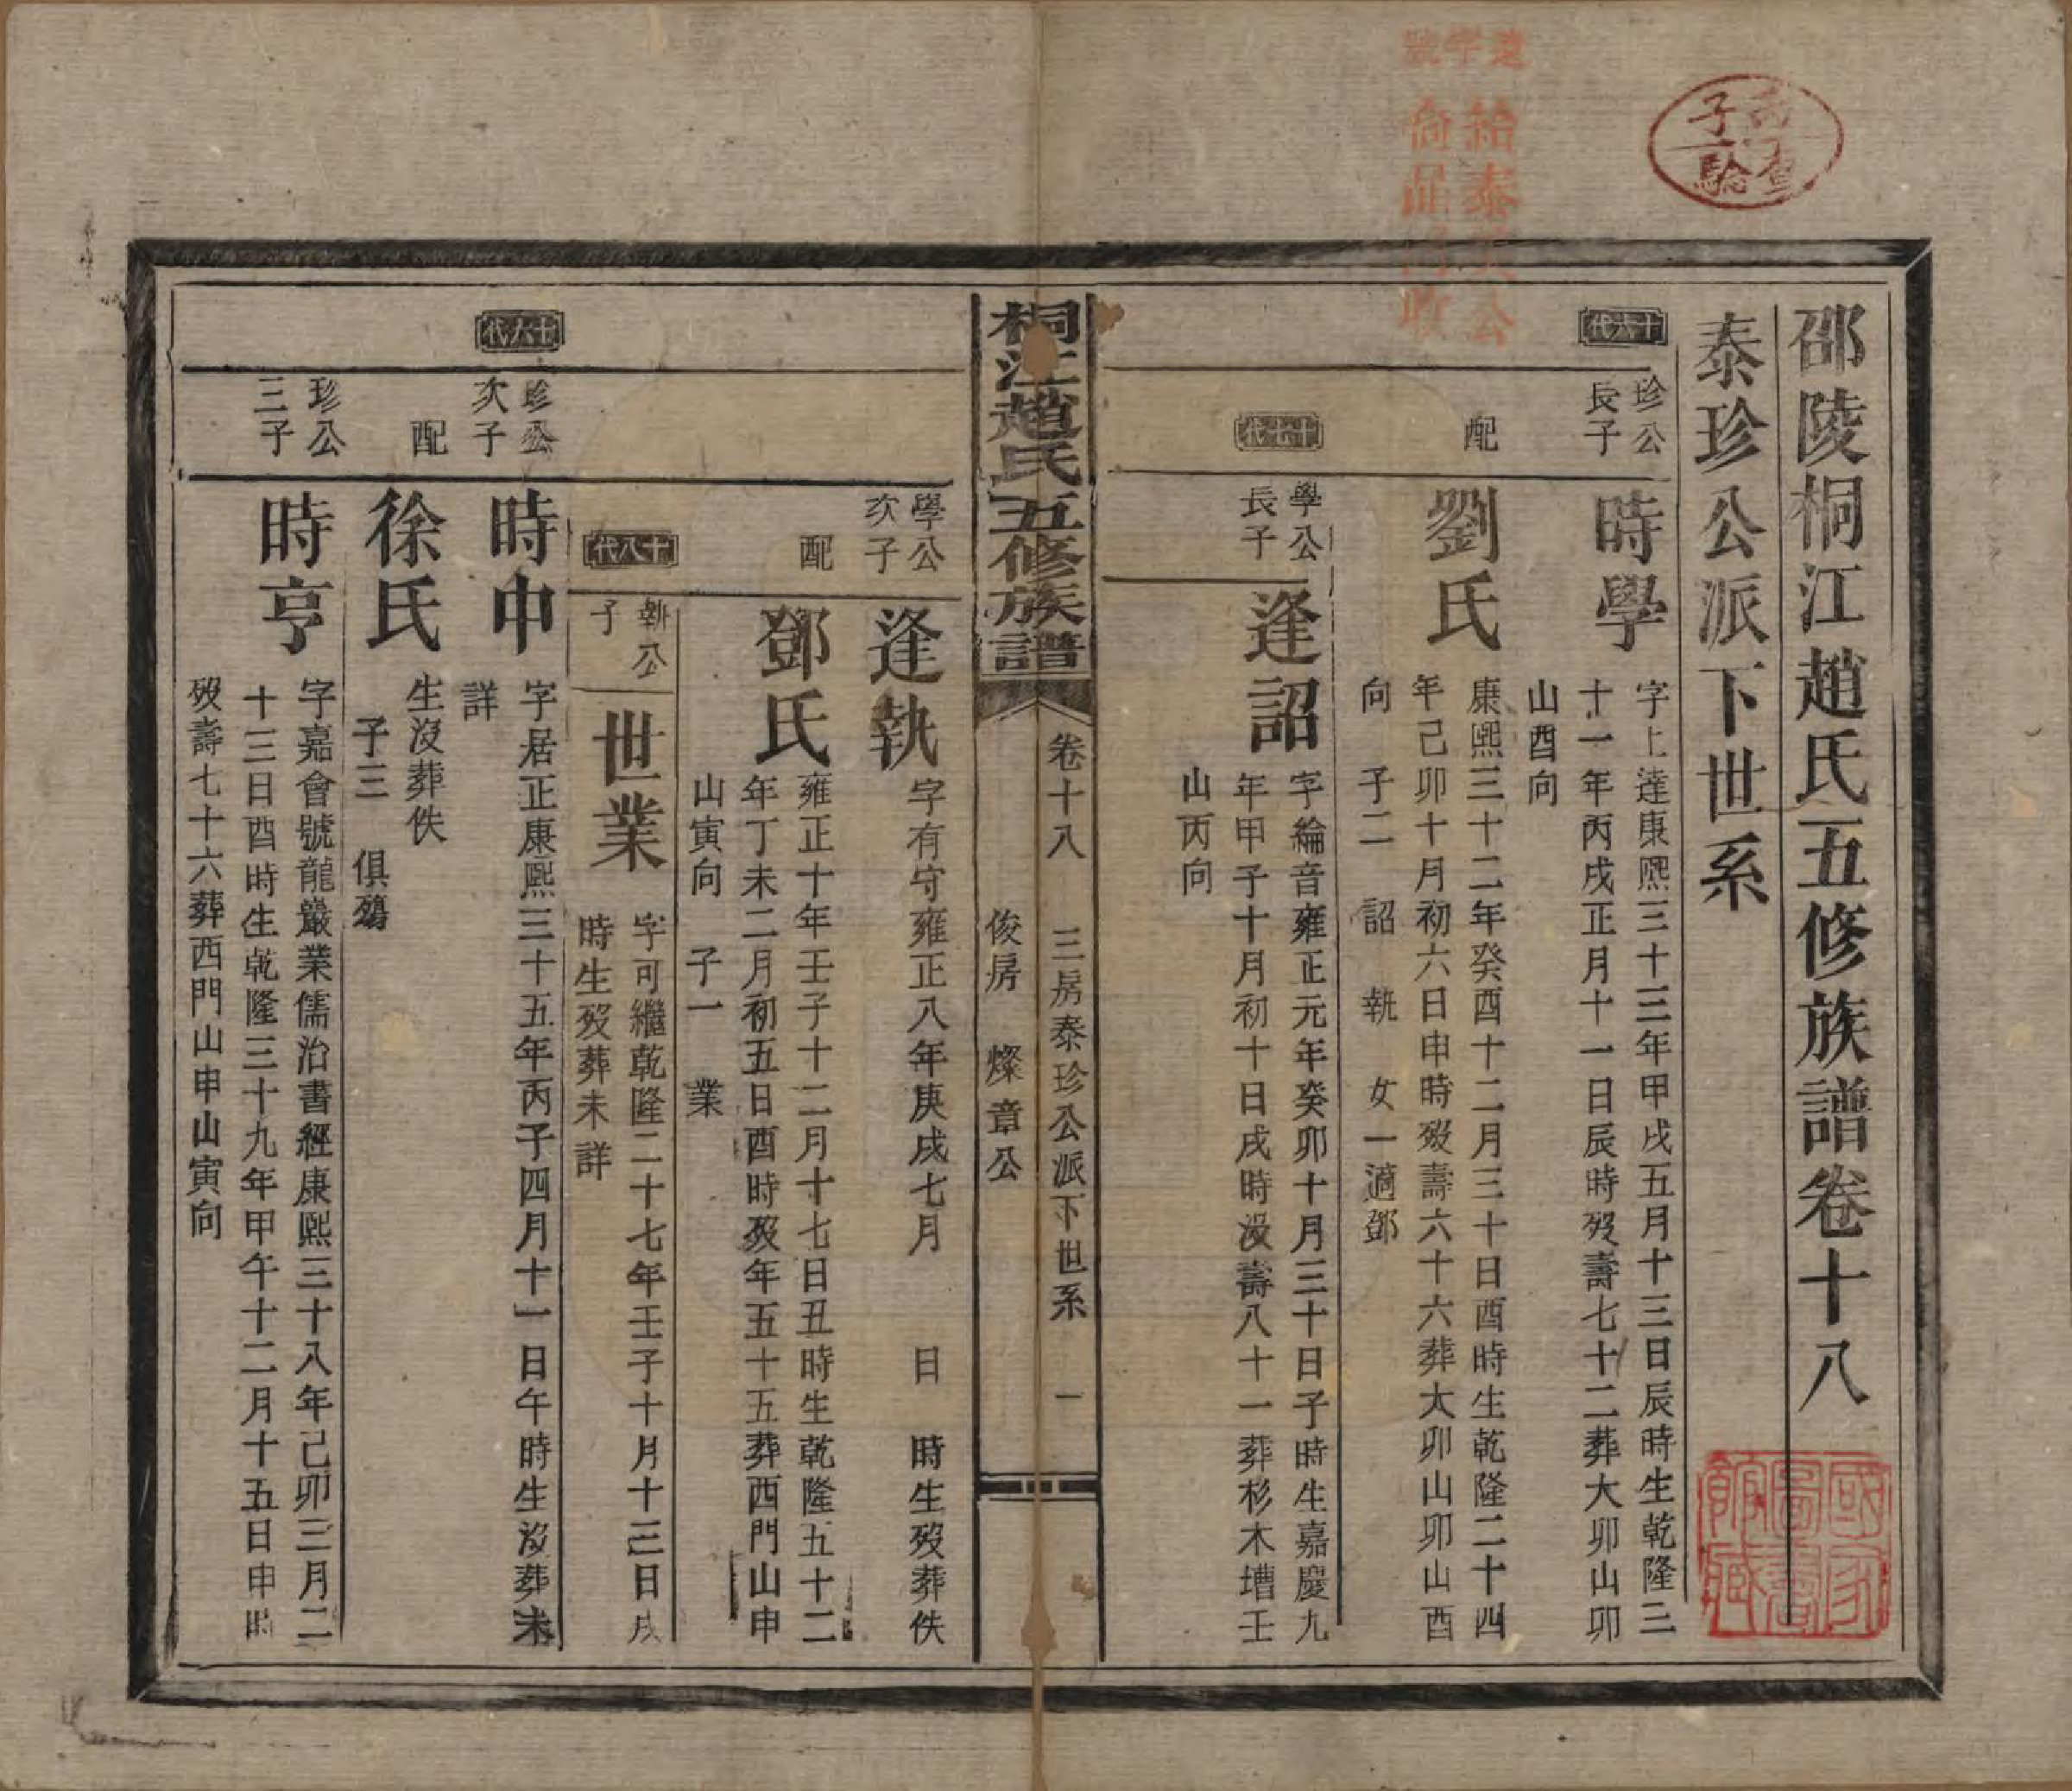 邵陵桐江趙氏五修族譜卷十八
泰珍公派下世系
十六代
珍公
長子
時學
字上達康熙三十三年甲戌五月十三日辰時生乾隆三
十一年丙戌正月十一日辰時歿壽七十二葬大卯山卯
山酉向
配
劉氏
康熙三十二年癸酉十二月三十日酉時生乾隆二十四
年己卯十月初六日申時歿壽六十六葬大卯山卯山酉
向 子二 詔 執 女一適鄧
十七代
學公
長子
逢詔
字綸音雍正元年癸卯十月三十日子時生嘉慶九
年甲子十月初十日戌時沒壽八十一葬杉木壋壬
山丙向
桐江趙氏五修族譜
卷十八 三房泰珍公派下世系 一
俊房 燦章公
學公
次子
逢執
字有守雍正八年庚戌七月 日 時生歿葬佚
配
鄧氏
雍正十年壬子十二月十七日丑時生乾隆五十二
年丁未二月初五日酉時歿年五十五葬西門山申
山寅向 子一 業
十八代
執公
子
世業
字可繼乾隆二十七年壬子十月十三日戌
時生歿葬未詳
十六代
珍公
次子
時中
字居正康熙三十五年丙子四月十一日午時生沒葬未
詳
配
徐氏
生沒葬佚
子三 俱殤
珍公
三子
時亨
字嘉會號龍巖業儒治書經康熙三十八年己卯三月二
十三日酉時生乾隆三十九年甲午十二月十五日申時
歿壽七十六葬西門山申山寅向
國家圖書館藏